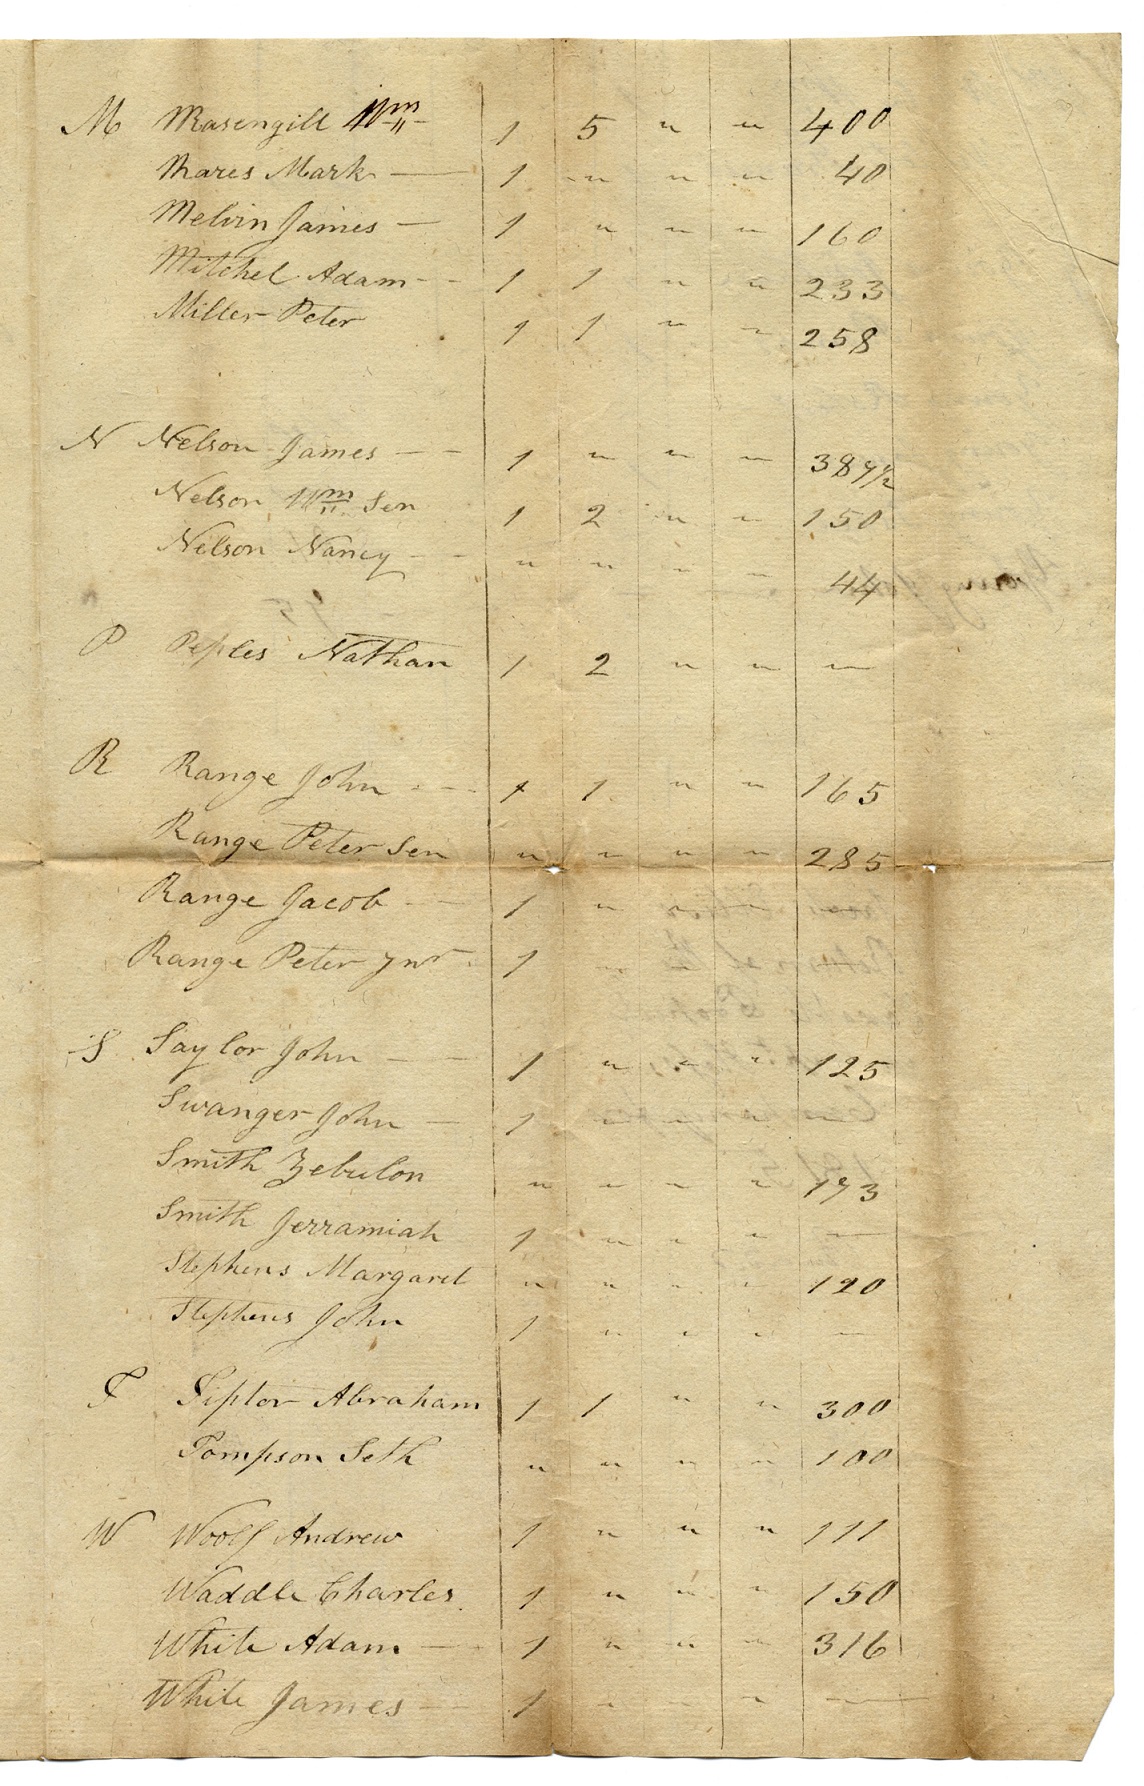 M Masengill Wm 1 5 " " 400
Mares Mark — 1 " " " 40
Melvin James — 1 " " " 160
Mitchel Adam - - 1 1 " " 233
Miller Peter 1 1 " " 258
N Nelson James — - 1 " " " 387½
Nelson Wm Sen 1 2 " " 150
Nelson Nancy - - " " " " 44
P Peples Nathan 1 2 " " —
R Range John - - 1 1 " " 165
Range Peter Sen " " " " 285
Range Jacob - - 1 " " "
Range Peter Jnr - 1 " "
S Saylor John — — 1 " " " 125
Swanger John — 1 " " " —
Smith Zebulon " " " " 173
Smith Jerramiah 1 " " " —
Stephens Margaret " " " " 120
Stephens John 1 " " " —
T Tiptor Abraham 1 1 " " 300
Tompson Seth " " " " 100
W Woolf Andrew 1 " " " 111
Waddle Charles 1 " " " 150
White Adam — 1 " " " 316
White James — 1 " " " —